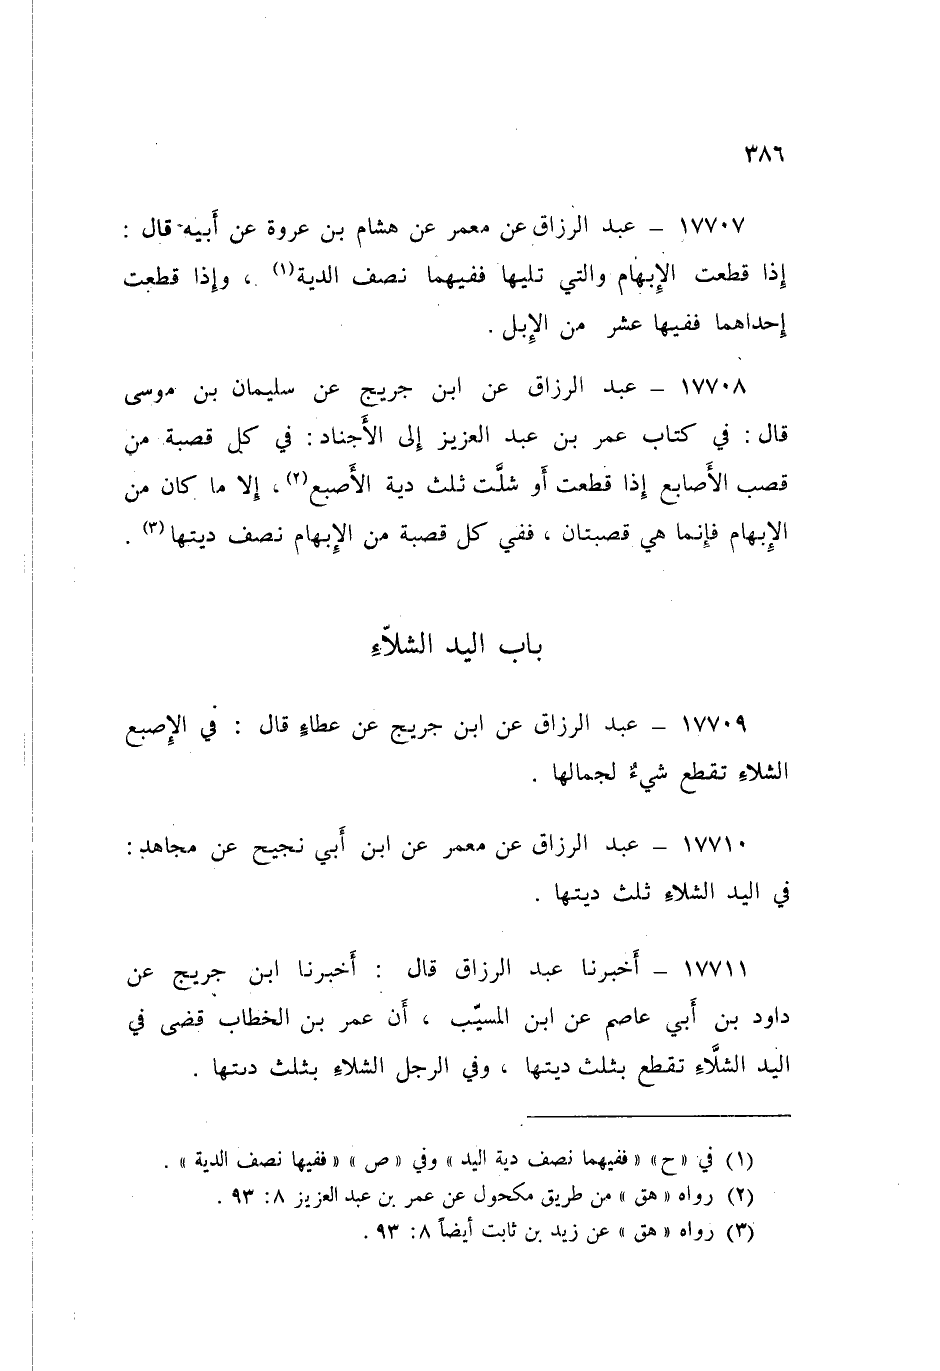 ٣٨٦
١٧٧٠٧ – عبد الرزاق عن معمر عن هشام بن عروة عن أَبيه قال :
إِذا قطعت الإِبهام والتي تليها ففيهما نصف الدية(١) ، وإِذا قطعت
إِحداهما ففيها عشر من الإِبل .
١٧٧٠٨ – عبد الرزاق عن ابن جريج عن سليمان بن موسى
قال : في كتاب عمر بن عبد العزيز إِلى الأَجناد : في كل قصبة من
قصب الأَصابع إِذا قطعت أَو شلَّت ثلث دية الأَصبع(٢) ، إِلا ما كان من
الإِبهام فإِنما هي قصبتان ، ففي كل قصبة من الإِبهام نصف ديتها(٣) .
باب اليد الشلاّءِ
١٧٧٠٩ – عبد الرزاق عن ابن جريج عن عطاءٍ قال : في الإِصبع
الشلاءِ تقطع شيءٌ لجمالها .
١٧٧١٠ – عبد الرزاق عن معمر عن ابن أَبي نجيح عن مجاهد :
في اليد الشلاءِ ثلث ديتها .
١٧٧١١ – أَخبرنا عبد الرزاق قال : أَخبرنا ابن جريج عن
داود بن أَبي عاصم عن ابن المسيّب ، أَن عمر بن الخطاب قضى في
اليد الشلَّاءِ تقطع بثلث ديتها ، وفي الرجل الشلاءِ بثلث ديتها .
(١) في «ح» «ففيهما نصف دية اليد» وفي «ص» «ففيها نصف الدية» .
(٢) رواه «هق» من طريق مكحول عن عمر بن عبد العزيز ٨: ٩٣ .
(٣) رواه «هق» عن زيد بن ثابت أيضاً ٨: ٩٣ .